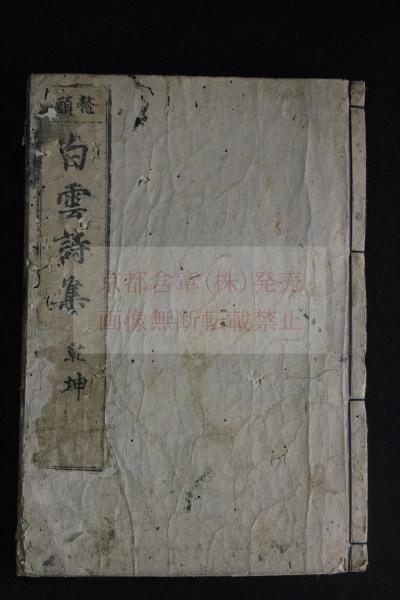 鼇頭
白雲詩集 乾坤
京都含章(株)発売
画像無断転載禁止